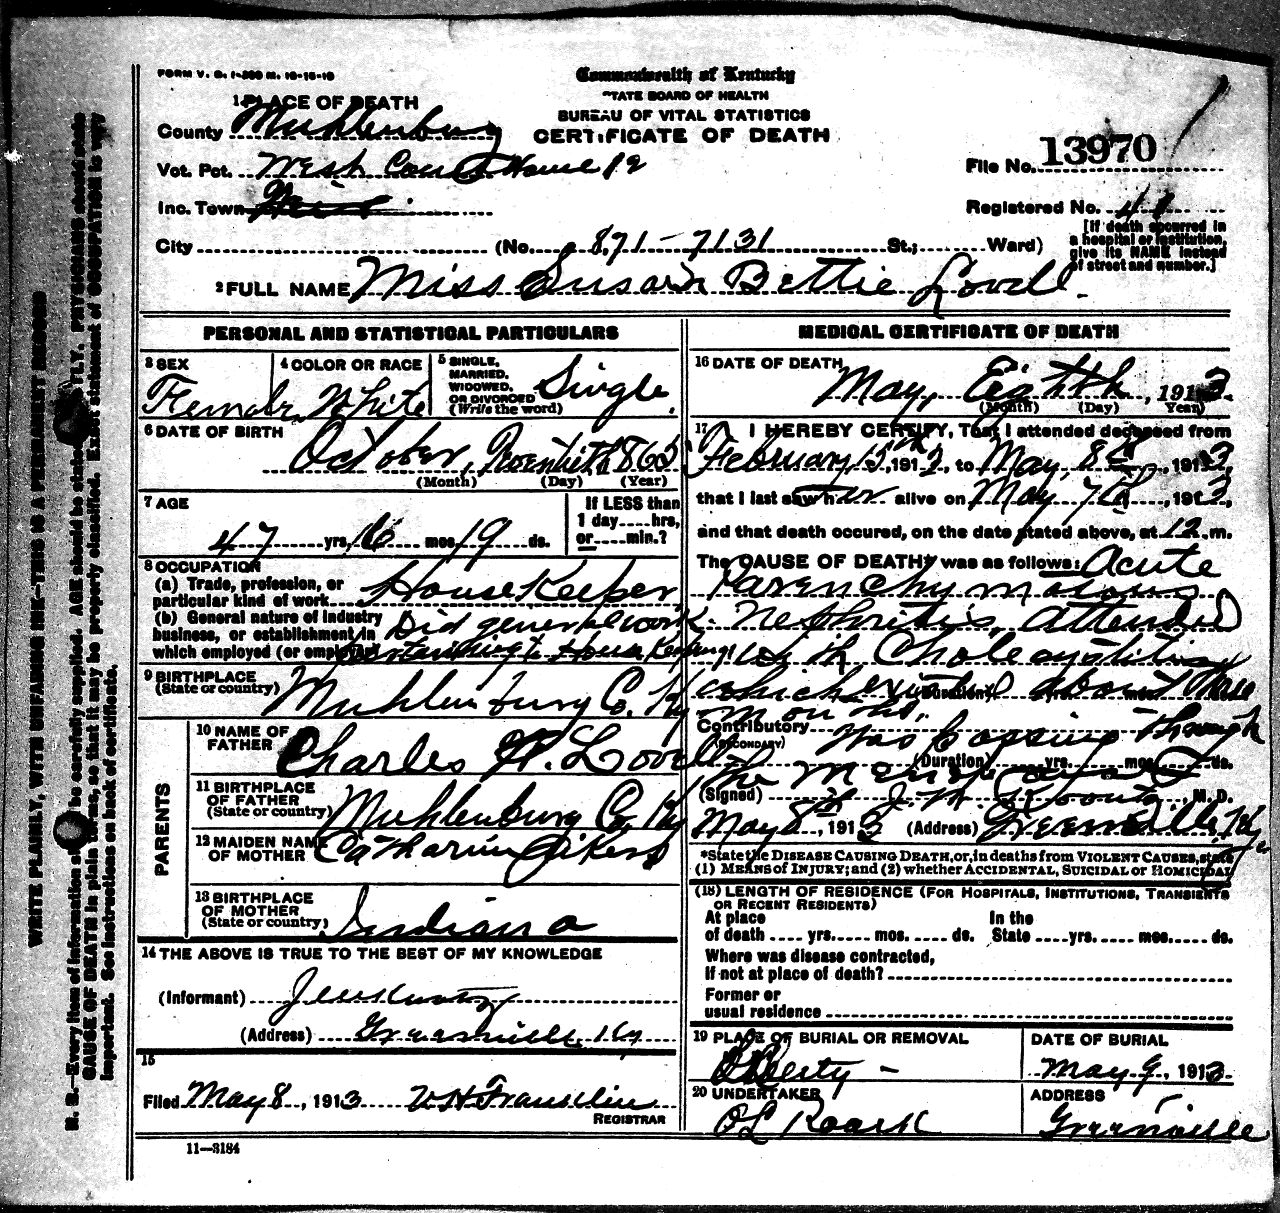 FORM V. S. 1-200 M. 10-15-10
Commonwealth of Kentucky
STATE BOARD OF HEALTH
BUREAU OF VITAL STATISTICS
CERTIFICATE OF DEATH
1 PLACE OF DEATH
County Muhlenburg
Vot. Pct. West Court House 12
Inc. Town
City (No. 871-7131 St.; Ward)
File No. 13970
Registered No. 41
[If death occurred in a hospital or institution, give its NAME instead of street and number.]
2 FULL NAME Miss Susan Bettie Lovell.
PERSONAL AND STATISTICAL PARTICULARS
3 SEX Female
4 COLOR OR RACE White
5 SINGLE, MARRIED, WIDOWED, OR DIVORCED (Write the word) Single.
6 DATE OF BIRTH
October, 1865
(Month) (Day) (Year)
7 AGE
47 yrs. 6 mos. 19 ds.
If LESS than 1 day....hrs, or....min.?
8 OCCUPATION
(a) Trade, profession, or particular kind of work House Keeper,
(b) General nature of industry business, or establishment in which employed (or employer) Did general work pertaining to House Keeping
9 BIRTHPLACE
(State or country) Muhlenburg Co. Ky
PARENTS
10 NAME OF FATHER Charles W. Lovell
11 BIRTHPLACE OF FATHER (State or country) Muhlenburg Co. Ky
12 MAIDEN NAME OF MOTHER Catharine
13 BIRTHPLACE OF MOTHER (State or country) Indiana
14 THE ABOVE IS TRUE TO THE BEST OF MY KNOWLEDGE
(Informant)
(Address) Greenville, Ky
15
Filed May 8, 1913 V H Franklin
REGISTRAR
11—3184
MEDICAL CERTIFICATE OF DEATH
16 DATE OF DEATH
May, Eighth, 1913
(Month) (Day) Year)
17 I HEREBY CERTIFY, That I attended deceased from
February 15th, 1913, to May, 8th, 1913,
that I last saw her alive on May 7th, 1913,
and that death occured, on the date stated above, at 12 m.
The CAUSE OF DEATH* was as follows: Acute
Parenchymatous
Nephritis, attended
with Cholecystitis
which existed about three
months.
(Duration) yrs. mos. ds.
Contributory Was passing through
(SECONDARY)
(Duration) yrs. mos. ds.
the Menopause
(Signed) J. W. , M. D.
May 8th, 1913 (Address) Greenville, Ky
*State the DISEASE CAUSING DEATH, or, in deaths from VIOLENT CAUSES, state
(1) MEANS of INJURY; and (2) whether ACCIDENTAL, SUICIDAL or HOMICIDAL
(18) LENGTH OF RESIDENCE (FOR HOSPITALS, INSTITUTIONS, TRANSIENTS OR RECENT RESIDENTS)
At place of death .... yrs. .... mos. .... ds. In the State .... yrs. .... mos. .... ds.
Where was disease contracted,
if not at place of death?
Former or
usual residence
19 PLACE OF BURIAL OR REMOVAL
Liberty -
DATE OF BURIAL
May 9, 1913.
20 UNDERTAKER
O L Roark
ADDRESS
Greenville
WRITE PLAINLY, WITH UNFADING INK—THIS IS A PERMANENT RECORD
N. B.—Every item of information should be carefully supplied. AGE should be stated EXACTLY. PHYSICIANS should state
CAUSE OF DEATH in plain terms, so that it may be properly classified. Exact statement of OCCUPATION is very
important. See instructions on back of certificate.